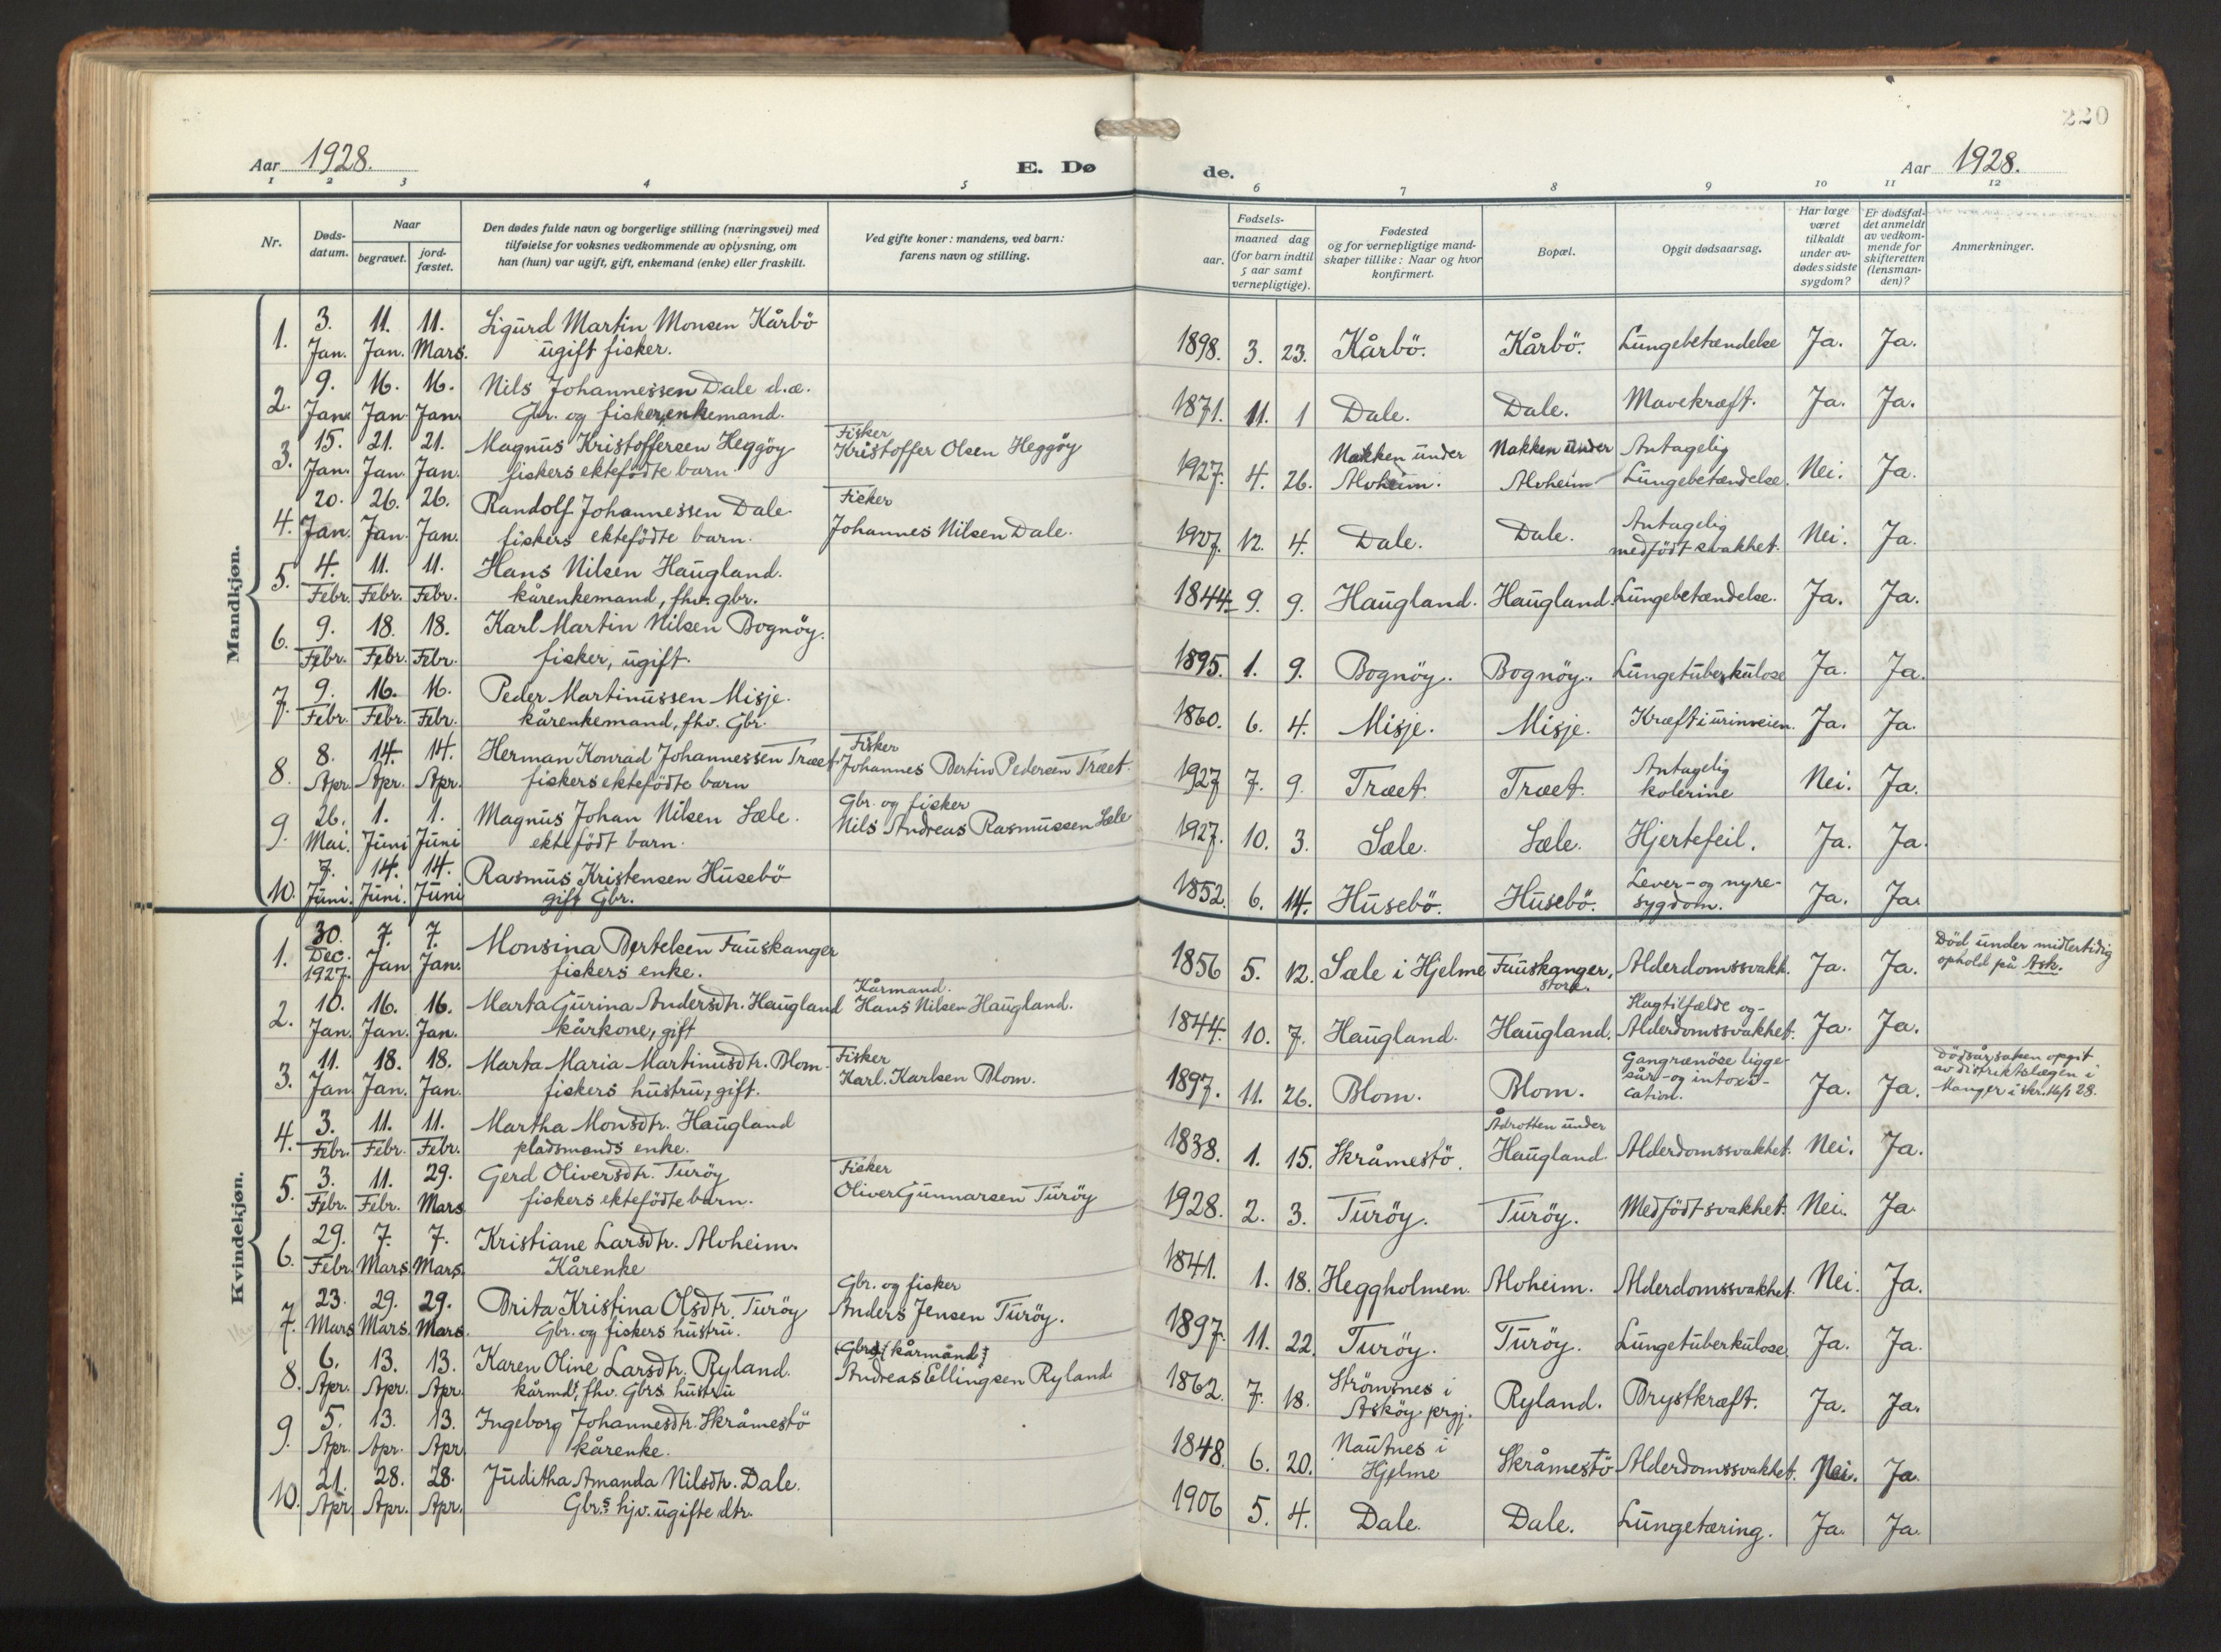 220
Aar 1928.
E. Døde.
Aar 1928.
1 2 3 4 5 6 7 8 9 10 11 12
Nr.
Døds-datum.
Naar
begravet.
jord-fæstet.
Den dødes fulde navn og borgerlige stilling (næringsvei) med
tilføielse for voksnes vedkommende av oplysning, om
han (hun) var ugift, gift, enkemand (enke) eller fraskilt.
Ved gifte koner: mandens, ved barn:
farens navn og stilling.
Fødsels-
aar.
maaned dag
(for barn indtil
5 aar samt
vernepligtige).
Fødested
og for vernepligtige mand-
skaper tillike: Naar og hvor
konfirmert.
Bopæl.
Opgit dødsaarsag.
Har læge
været
tilkaldt
under av-
dødes sidste
sygdom?
Er dødsfal-
det anmeldt
av vedkom-
mende for
skifteretten
(lensman-
den)?
Anmerkninger.
Mandkjøn.
1. 3. Jan. 11. Jan. 11. Mars. Sigurd Martin Monsen Kårbö
ugift fisker. 1898. 3. 23. Kårbö. Kårbö. Lungebetændelse Ja. Ja.
2. 9. Jan. 16. Jan. 16. Jan. Nils Johannessen Dale d.æ.
Gbr. og fisker, enkemand. 1871. 11. 1 Dale. Dale. Mavekræft. Ja. Ja.
3. 15. Jan. 21. Jan. 21. Jan. Magnus Kristoffersen Heggöy
fiskers ektefödte barn. Fisker
Kristoffer Olsen Heggöy 1927. 4. 26. Nakken under
Alvheim. Nakken under
Alvheim Antagelig
Lungebetændelse. Nei. Ja.
4. 20. Jan. 26. Jan. 26. Jan. Randolf Johannessen Dale
fiskers ektefödte barn. Fisker
Johannes Nilsen Dale. 1927. 12. 4. Dale. Dale. Antagelig
medfödt svakhet. Nei. Ja.
5. 4. Febr. 11. Febr. 11. Febr. Hans Nilsen Haugland.
kårenkemand, fhv. gbr. 1844. 9. 9. Haugland. Haugland. Lungebetændelse. Ja. Ja.
6. 9. Febr. 18. Febr. 18. Febr. Karl Martin Nilsen Bognöy.
fisker, ugift. 1895. 1. 9. Bognöy. Bognöy. Lungetuberkulose Ja. Ja.
7. 9. Febr. 16. Febr. 16. Febr. Peder Martinussen Misje.
kårenkemand, fhv. Gbr. 1860. 6. 4. Misje. Misje. Kræft i urinveien. Ja. Ja.
8. 8. Apr. 14. Apr. 14. Apr. Herman Konrad Johannessen Træet
fiskers ektefödte barn Fisker
Johannes Bertin Pedersen Træet. 1927 7. 9. Træet. Træet. Antagelig
kolerine Nei. Ja.
9. 26. Mai. 1. Juni 1. Juni Magnus Johan Nilsen Sæle.
ektefödt barn. Gbr. og fisker
Nils Andreas Rasmussen Sæle 1927. 10. 3. Sæle. Sæle. Hjertefeil. Ja. Ja.
10. 7. Juni. 14. Juni. 14. Juni Rasmus Kristensen Husebö
gift Gbr. 1852. 6. 14. Husebö. Husebö. Lever- og nyre-
sygdom. Ja. Ja.
Kvindekjøn.
1. 30. Dec. 1927. 7. Jan 7. Jan. Monsina Bertelsen Fauskanger
fiskers enke. 1856 5. 12. Sæle i Hjelme Fauskanger,
store. Alderdomssvakh. Ja. Ja. Död under midlertidig
ophold på Ask.
2. 10. Jan. 16. Jan. 16. Jan. Marta Gurina Andersdtr. Haugland
kårkone, gift Kårmand.
Hans Nilsen Haugland. 1844. 10. 7. Haugland. Haugland. Slagtilfælde og-
Alderdomssvakhet. Ja. Ja.
3. 11. Jan 18. Jan. 18. Jan. Marta Maria Martinusdtr. Blom.
fiskers hustru, gift. Fisker
Karl. Karlsen Blom. 1897. 11. 26. Blom. Blom. Gangrænöse ligge-
sår- og intoxi-
cation. Ja. Ja. Dödsårsaken opgit
av distriktslægen i
Manger i skr. 28.
4. 3. Febr. 11. Febr. 11. Febr. Martha Monsdtr. Haugland
pladsmands enke. 1838. 1. 15. Skråmestö. Ådrotten under
Haugland. Alderdomssvakhet. Nei. Ja.
5. 3. Febr. 11. Febr. 29. Mars Gerd Oliversdtr. Turöy
fiskers ektefödte barn. Fisker
Oliver Gunnarsen Turöy 1928. 2. 3. Turöy. Turöy. Medfödt svakhet. Nei. Ja.
6. 29. Febr. 7. Mars 7. Mars. Kristiane Larsdtr. Alvheim.
Kårenke 1841. 1. 18. Heggholmen. Alvheim. Alderdomssvakhet. Nei. Ja.
7. 23. Mars 29. Mars. 29. Mars. Brita Kristina Olsdtr. Turöy
Gbr. og fiskers hustru. Gbr. og fisker
Anders Jensen Turöy. 1897. 11. 22. Turöy. Turöy. Lungetuberkulose. Ja. Ja.
8. 6. Apr. 13. Apr. 13. Apr. Karen Oline Larsdtr. Ryland.
kårmds, fhv. Gbrs hustru kårmand
Andreas Ellingsen Ryland 1862. 7. 18. Strömsnes i
Asköy prgj. Ryland. Brystkræft. Ja. Ja.
9. 5. Apr. 13. Apr. 13. Apr Ingeborg Johannesdtr. Skråmestö
kårenke. 1848. 6. 20. Nautnes i
Hjelme Skråmestö Alderdomssvakhet. Nei. Ja.
10. 21. Apr. 28. Apr. 28. Apr. Juditha Amanda Nilsdtr. Dale.
Gbr.s hjv. ugifte dtr. 1906 5. 4. Dale. Dale. Lungetæring. Ja. Ja.